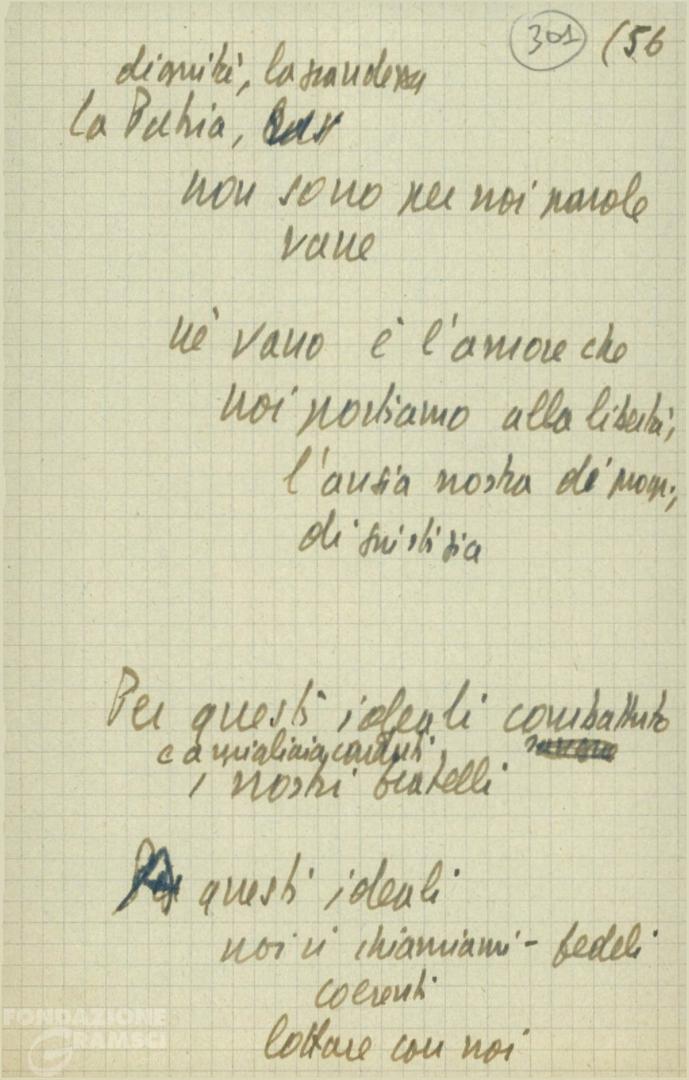 301 (56
dignità, la grandezza
la Patria,
non sono per noi parole
vane
nè vano è l'amore che
noi portiamo alla libertà,
l'ansia nostra di progr.,
di giustizia
Per questi ideali combattuto
e a migliaia caduti
i nostri fratelli
questi ideali
noi vi chiamiamo - fedeli
coerenti
lottare con noi
FONDAZIONE
GRAMSCI